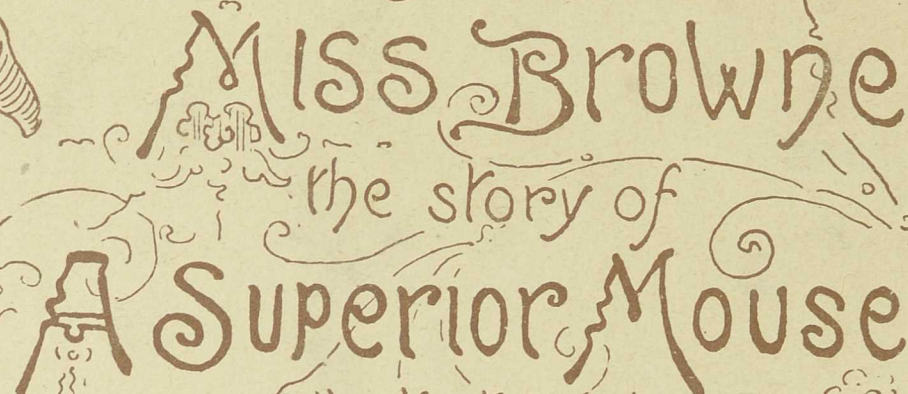 Miss Browne
the story of
A Superior Mouse